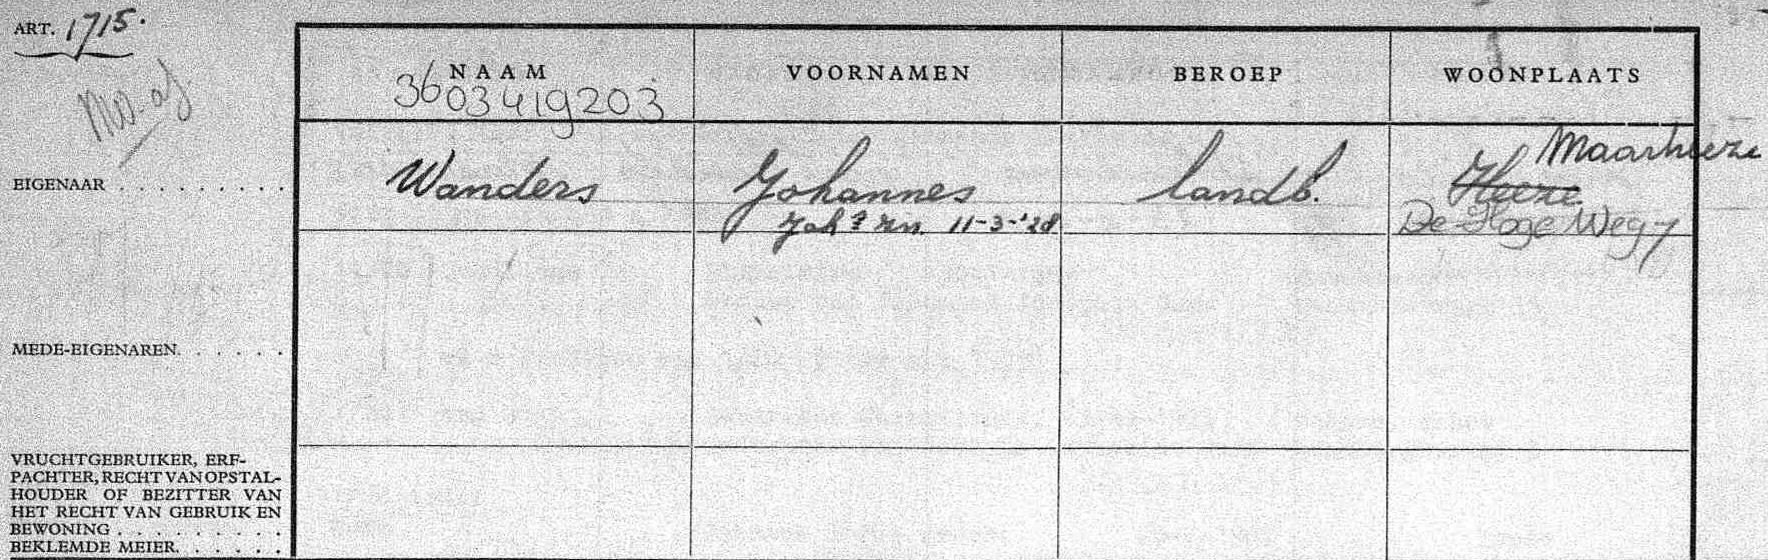 ART. 1715.
NAAM VOORNAMEN BEROEP WOONPLAATS
3603419203
Maarheeze
EIGENAAR . . . . . . . . . Wanders Johannes landb. Heeze
Joh.s zn. 11-3-'28 De Hoge Weg 7
MEDE-EIGENAREN. . . . . . .
VRUCHTGEBRUIKER, ERF-
PACHTER, RECHT VAN OPSTAL-
HOUDER OF BEZITTER VAN
HET RECHT VAN GEBRUIK EN
BEWONING . . . . . . . . .
BEKLEMDE MEIER. . . . . . .